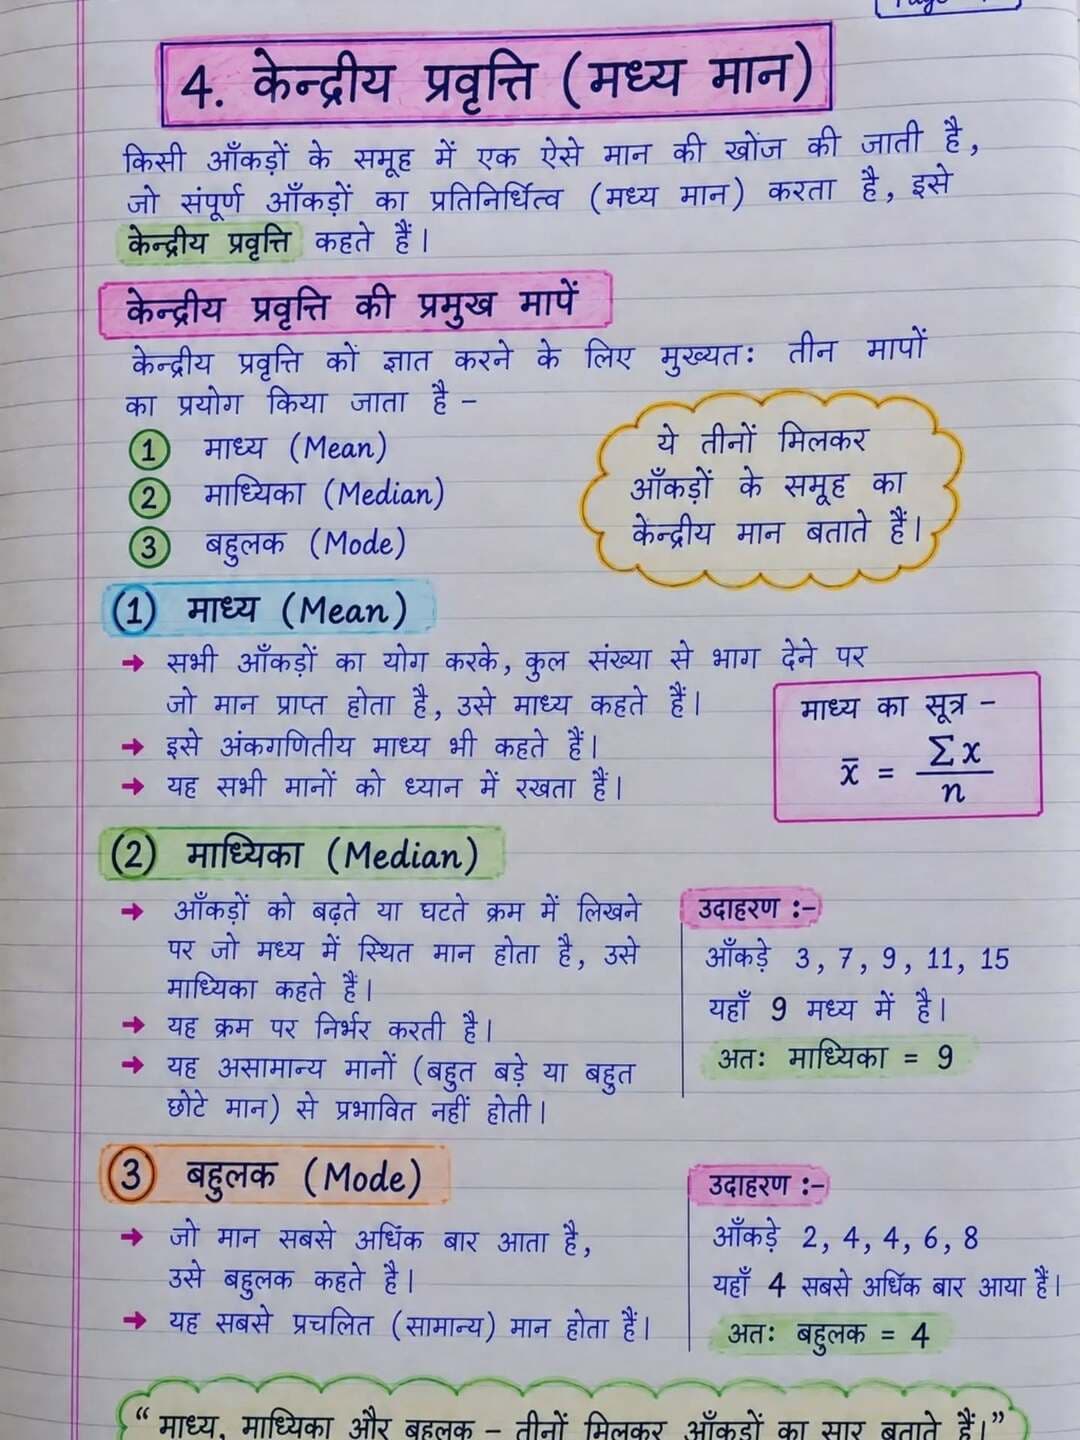 Page
4. केन्द्रीय प्रवृत्ति (मध्य मान)
किसी आँकड़ों के समूह में एक ऐसे मान की खोज की जाती है,
जो संपूर्ण आँकड़ों का प्रतिनिधित्व (मध्य मान) करता है, इसे
केन्द्रीय प्रवृत्ति कहते हैं।
केन्द्रीय प्रवृत्ति की प्रमुख मापें
केन्द्रीय प्रवृत्ति कों ज्ञात करने के लिए मुख्यतः तीन मापों
का प्रयोग किया जाता है –
1 माध्य (Mean)
2 माध्यिका (Median)
3 बहुलक (Mode)
ये तीनों मिलकर
आँकड़ों के समूह का
केन्द्रीय मान बताते हैं।
(1) माध्य (Mean)
→ सभी आँकड़ों का योग करके, कुल संख्या से भाग देने पर
जो मान प्राप्त होता है, उसे माध्य कहते हैं।
→ इसे अंकगणितीय माध्य भी कहते हैं।
→ यह सभी मानों को ध्यान में रखता हैं।
माध्य का सूत्र –
x̄ = Σx / n
(2) माध्यिका (Median)
→ आँकड़ों को बढ़ते या घटते क्रम में लिखने
पर जो मध्य में स्थित मान होता है, उसे
माध्यिका कहते हैं।
→ यह क्रम पर निर्भर करती है।
→ यह असामान्य मानों (बहुत बड़े या बहुत
छोटे मान) से प्रभावित नहीं होती।
उदाहरण :–
आँकड़े 3, 7, 9, 11, 15
यहाँ 9 मध्य में है।
अतः माध्यिका = 9
3 बहुलक (Mode)
→ जो मान सबसे अधिक बार आता है,
उसे बहुलक कहते है।
→ यह सबसे प्रचलित (सामान्य) मान होता हैं।
उदाहरण :–
आँकड़े 2, 4, 4, 6, 8
यहाँ 4 सबसे अधिक बार आया हैं।
अतः बहुलक = 4
“ माध्य, माध्यिका और बहुलक – तीनों मिलकर आँकड़ों का सार बताते हैं।”